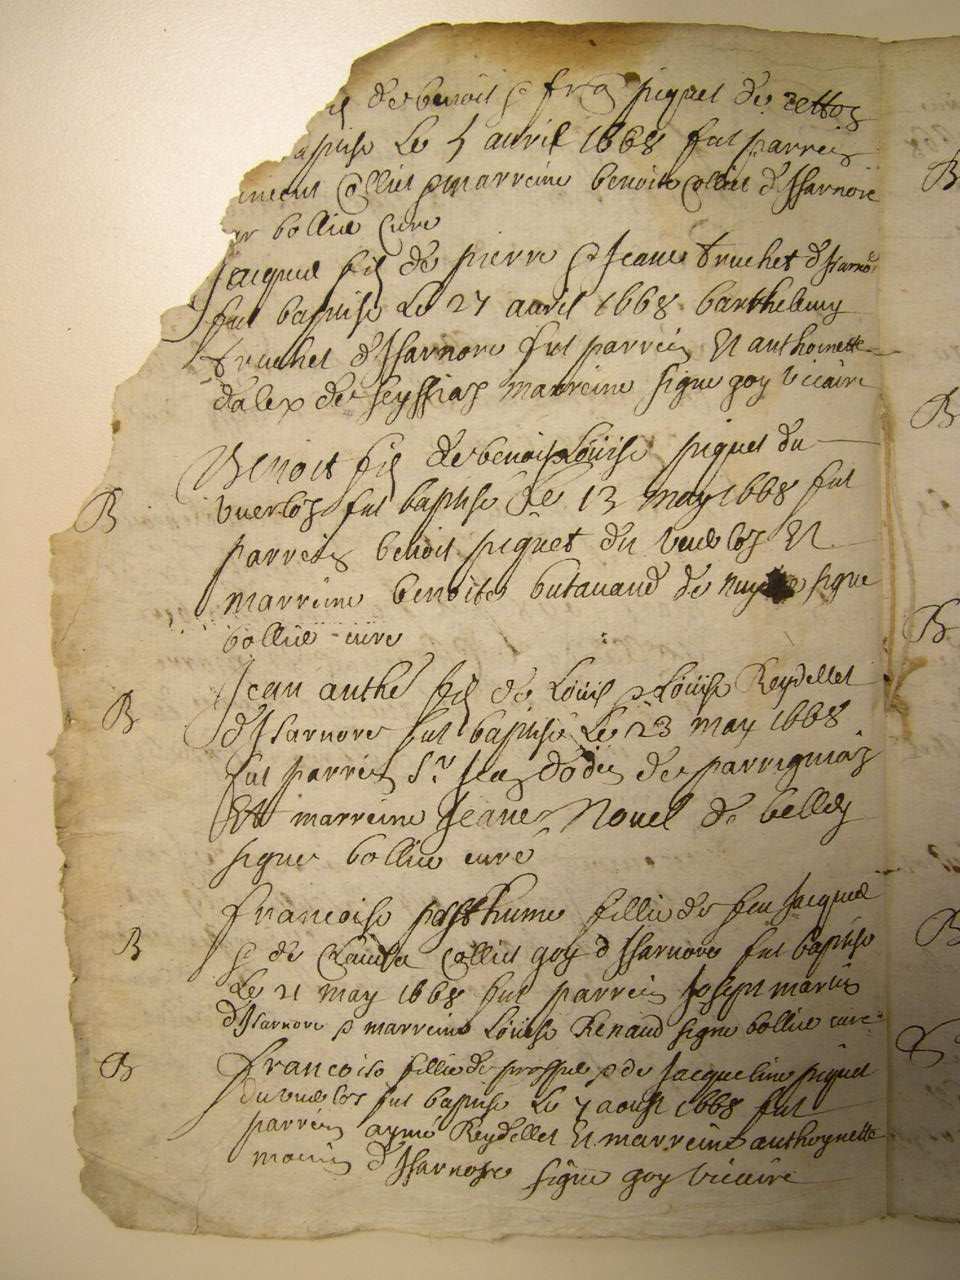 fil de benoit & fra piquet de
baptise Le 5 avril 1668 fut parrein
Colliet & marreine benoite Colliet d'Isarnore
bolliet Cure
Jacques fil de pierre & Jeane truchet d'Isarnore
fut baptise Le 27 avril 1668 barthelemy
truchet d'Isarnore fut parrein Et anthoinette
dalex de seyssiaz marreine signe goy vicaire
Benoit fil de benoit & Louise piquet du
fut baptise Le 13 may 1668 fut
parrein benoit piquet du Et
B
marreine benoite butavand de signe
bolliet cure
Jean anthe fil de Louis & Louise Reydellet
B
d'Isarnore fut baptise Le 23 may 1668
fut parrein Sr Jean dodin de parrigniaz
Et marreine Jeane Nouel de belley
signe bolliet cure
francoise posthume fillie de feu Jacques
B
& de Clauda Colliet goy d Isarnore fut baptise
Le 21 may 1668 fut parrein Joseph marin
d'Isarnore & marreine Louise Renaud signe bolliet cure
B
francoise fillie de & de Jacqueline piquet
du fut baptise Le 7 aoust 1668 fut
parrein aymé Reydellet Et marreine anthoynette
d'Isarnore signe goy vicaire